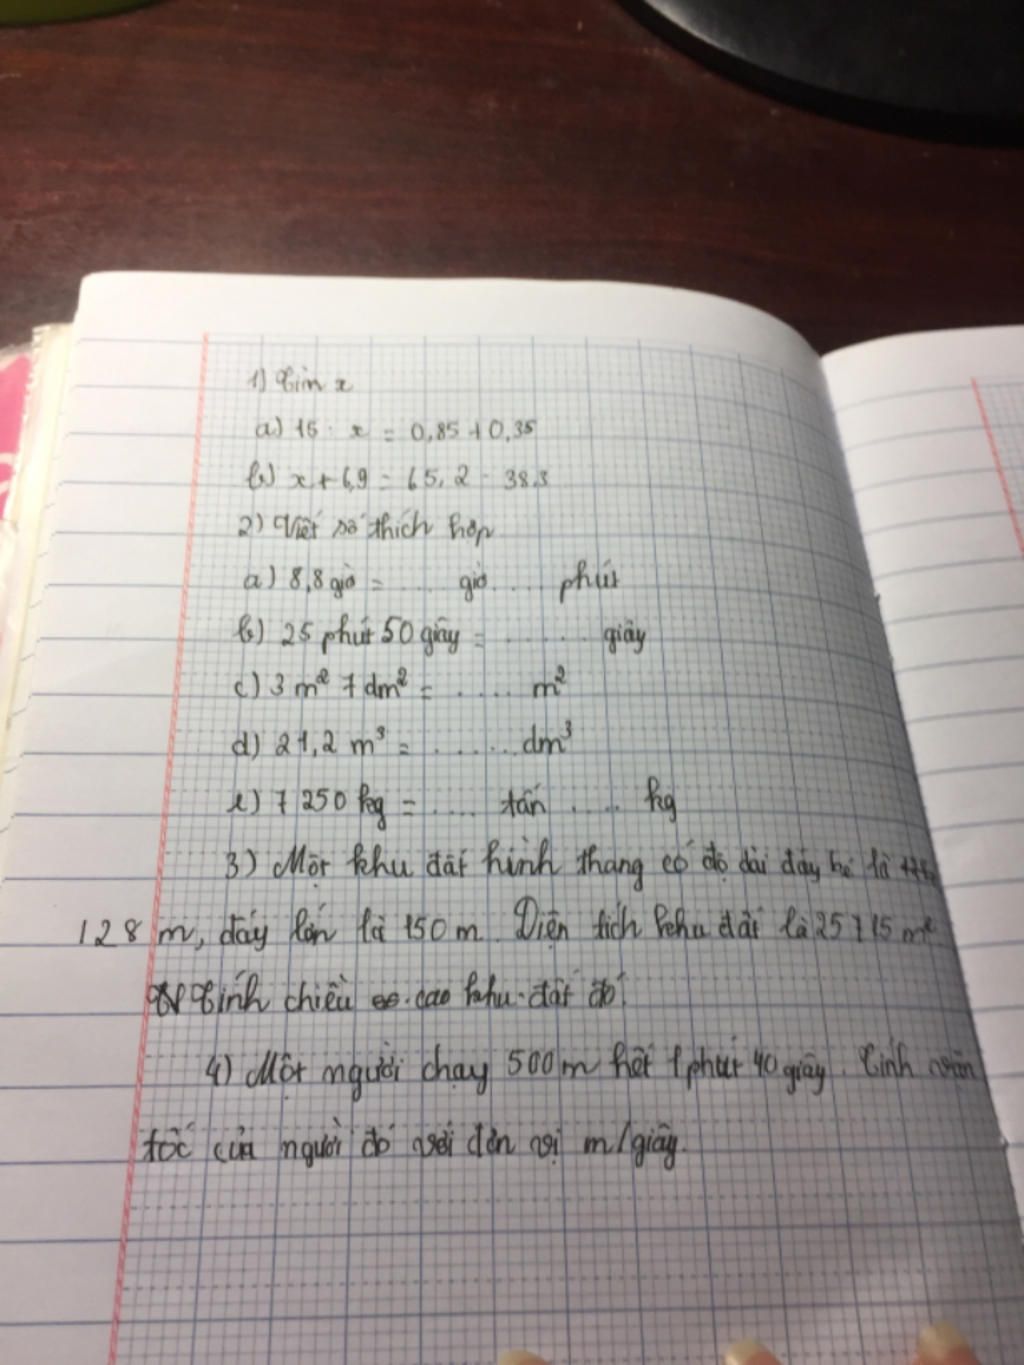 1) Tìm x
a) 15 : x = 0,85 + 0,35
b) x + 6,9 = 65,2 - 38,3
2) Viết số thích hợp
a) 8,8 giờ = .... giờ .... phút
b) 25 phút 50 giây = ....... giây
c) 3 m² 7 dm² = ..... m²
d) 21,2 m³ = ...... dm³
e) 7 250 kg = .... tấn .... kg
3) Một khu đất hình thang có độ dài đáy bé là
128 m, đáy lớn là 150 m. Diện tích khu đất là 25 715 m²
Tính chiều cao khu đất đó.
4) Một người chạy 500 m hết 1 phút 40 giây. Tính vận
tốc của người đó với đơn vị m/giây.